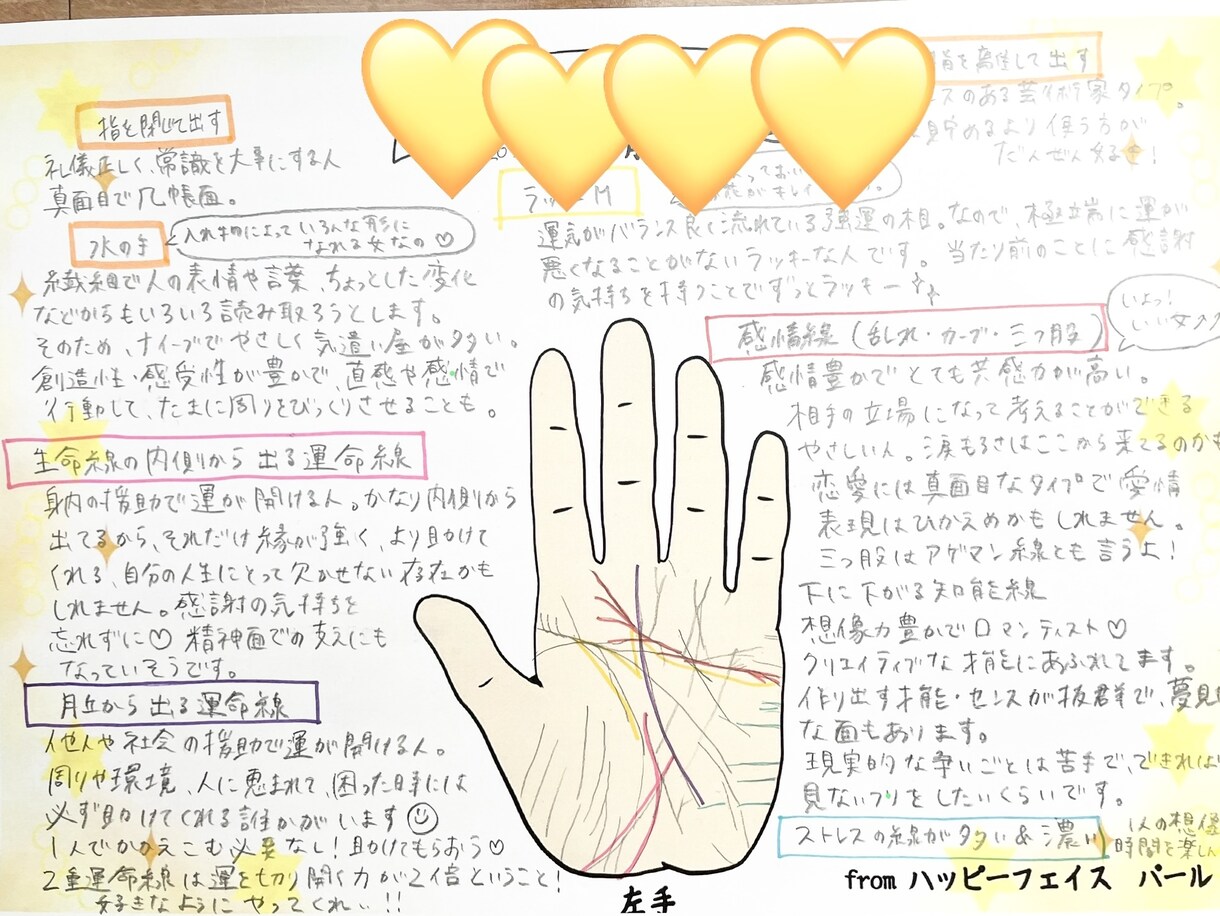 指を閉じて出す
礼儀正しく、常識を大事にする人
真面目で几帳面。
水の手
入れ物によって いろんな形に
なれる女なの♡
繊細で人の表情や言葉、ちょっとした変化
などからもいろいろ読み取ろうとします。
そのため、ナイーブでやさしく気遣い屋が多い。
創造性・感受性が豊かで、直感や感情で
行動して、たまに周りをびっくりさせることも。
生命線の内側から出る運命線
身内の援助で運が開ける人。かなり内側から
出てるから、それだけ縁が強く、より助けて
くれる、自分の人生にとって欠かせない存在かも
しれません。感謝の気持ちを
忘れずに♡ 精神面での支えにも
なっていそうです。
月丘から出る運命線
他人や社会の援助で運が開ける人。
周りや環境、人に恵まれて、困った時には
必ず助けてくれる誰かがいます☺
1人でかかえこむ必要なし!助けてもらおう♡
2重運命線は運を切り開く力が2倍ということ!
好きなように やってくれい!!
指を離して出す
スのある芸術家タイプ。
貯めるより使う方が
だんぜん好き!
ラッ M
運気がバランス良く流れている強運の相。なので、極端に運が
悪くなることがないラッキーな人です。当たり前のことに感謝
の気持ちを持つことでずっとラッキー✨
感情線(乱れ・カーブ・三つ股)
いよっ!
いい女
感情豊かでとても共感力が高い。
相手の立場になって考えることができる
やさしい人。涙もろさはここから来てるのかも
恋愛には真面目なタイプで愛情
表現はひかえめかもしれません。
三つ股はアゲマン線とも言うよ!
下に下がる知能線
想像力豊かでロマンティスト♡
クリエイティブな才能にあふれてます。
作り出す才能・センスが抜群で、夢見
な面もあります。
現実的な争いごとは苦手で、できれば
見ないフリをしたいくらいです。
ストレスの線が多い&濃い
1人の想像
時間を楽しん
from ハッピーフェイス パール
左手